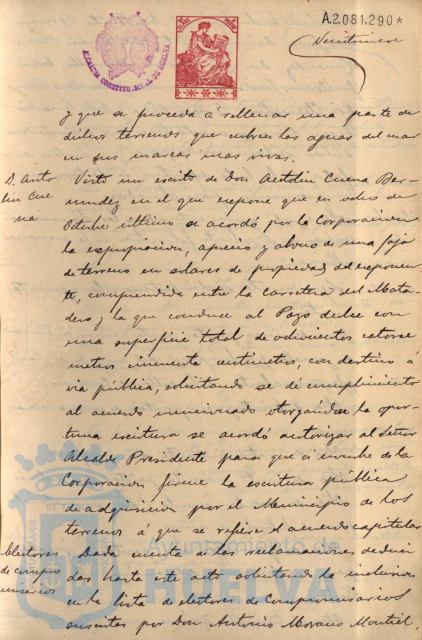 A.2.081.290*
ALCALDIA CONSTITUCIONAL DE HUELVA
y que se proceda á rellenar una parte de
dichos terrenos que cubren las aguas del mar
en sus mareas mas vivas.
D. Anto
lin Cue
na
Visto un escrito de Don Antolin Cuena Ber-
mudez en el que expone que en ocho de
Octubre último se acordó por la Corporacion
la espropiacion, aprecio y abono de una faja
de terreno en solares de propiedad del exponen
te, comprendida entre la carretera del Mata-
dero y la que conduce al Pozo dulce con
una superficie total de ochocientos catorce
metros cincuenta centimetros, con destino á
via pública, solicitando se dé cumplimiento
al acuerdo mencionado otorgándose la opor-
tuna escritura se acordó autorizar al Señor
Alcalde Presidente para que á nombre de la
Corporacion firme la escritura pública
de adquisicion por el Municipio de los
terrenos á que se refiere el acuerdo capitular
Electores
de compro
misarios
Dada cuenta de las reclamaciones deduci
das hasta este acto solicitando la inclusion
en la lista de electores de Compromisarios
suscritas por Don Antonio Moreno Montiel,
Ayuntamiento de
HUELVA